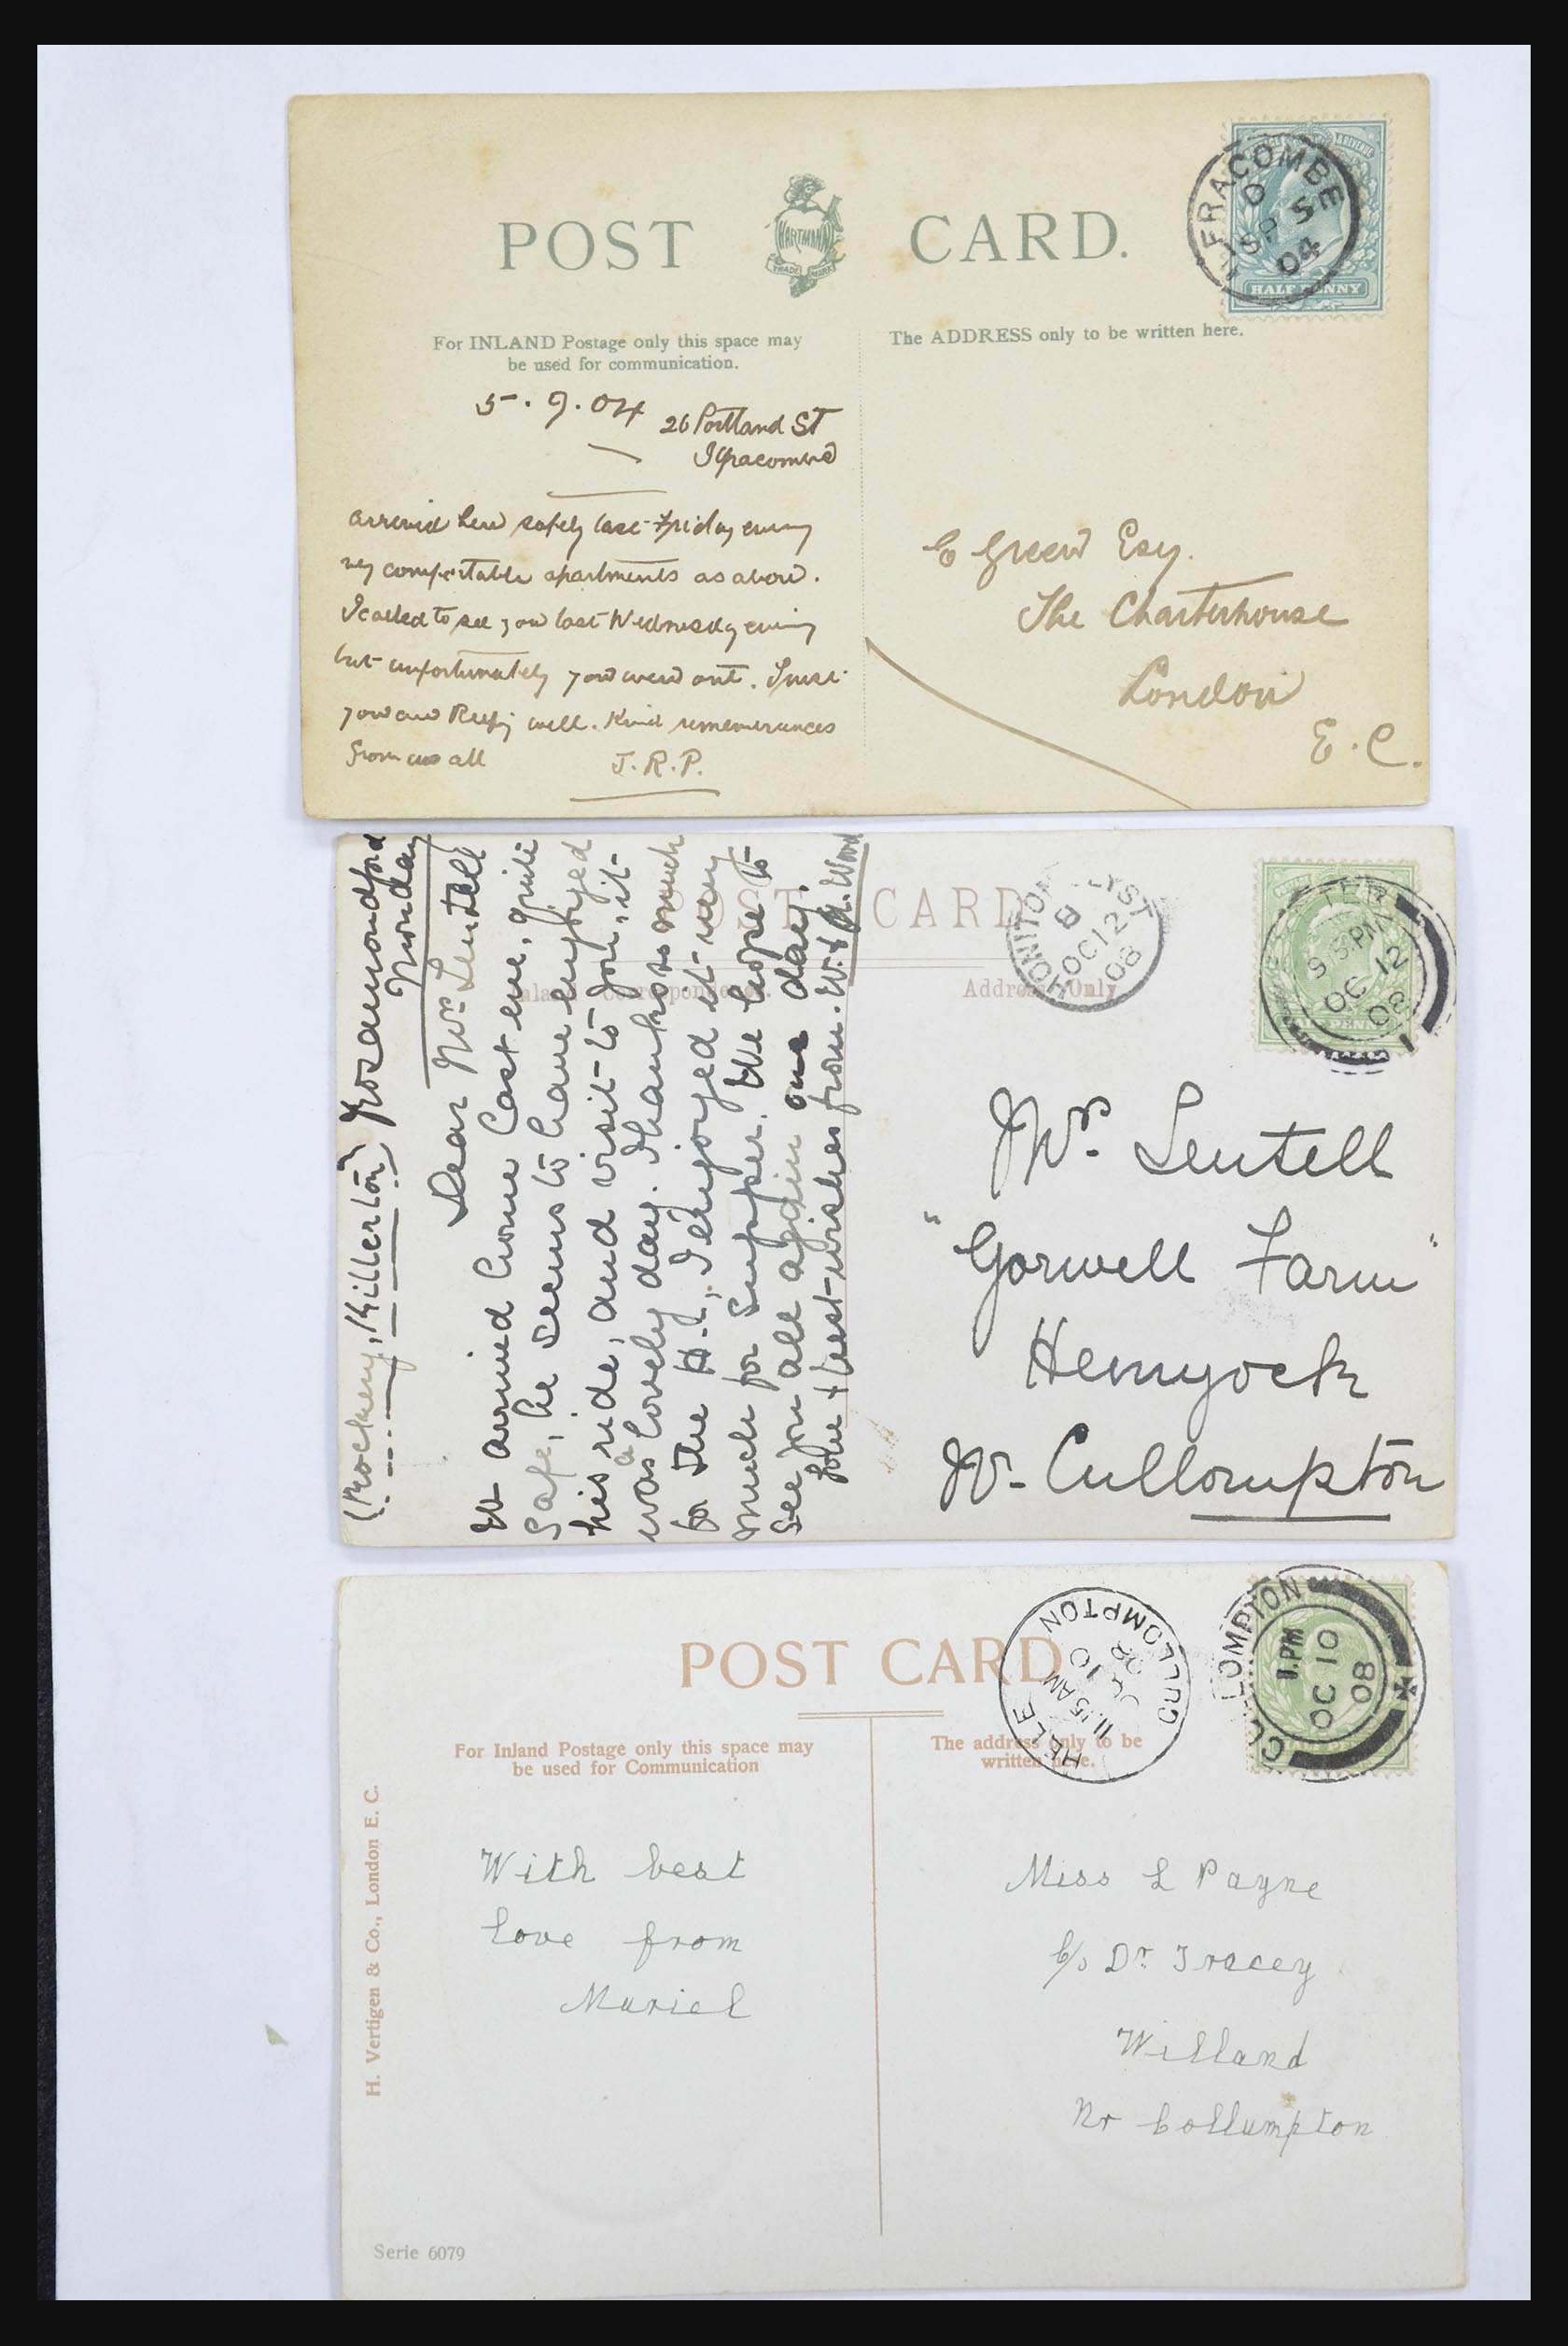 POST CARD.
HARTMANN
TRADE MARK
ILFRACOMBE
D
SP 5
04
HALF PENNY
For INLAND Postage only this space may
be used for communication.
The ADDRESS only to be written here.
5.9.04
26 Portland St
Ilfracombe
arrived here safely last Friday evening
very comfortable apartments as above.
I called to see you last Wednesday evening
but unfortunately you were out. Trust
you are keeping well. Kind rememerances
from us all
J.R.P.
E Green Esq.
The Charterhouse
London
E.C.
CARD
Inland Correspondence.
Address Only
HONITON CLYST
OC 12
08
9 35 PM
OC 12
08
(Rockery, Killerton) Rosamondford
Monday
Dear Mr Lentell
W arrived home last eve, quite
safe, he seems to have enjoyed
his ride, and visit to you, it
was a lovely day. Thanks so much
for the H., I enjoyed it very
much for supper. We hope to
see you all again one day.
love & best wishes from. W. & A. Wood
Mr. Lentell
"Gorwell Farm"
Hemyock
Nr. Cullompton
POST CARD
HELE CULLOMPTON
11.15 AM
OC 10
08
CULLOMPTON
1.PM
OC 10
08
For Inland Postage only this space may
be used for Communication
The address only to be
written here.
H. Vertigen & Co., London E. C.
With best
love from
Muriel
Miss L Payne
c/o Dr Tracey
Willand
Nr Collumpton
Serie 6079